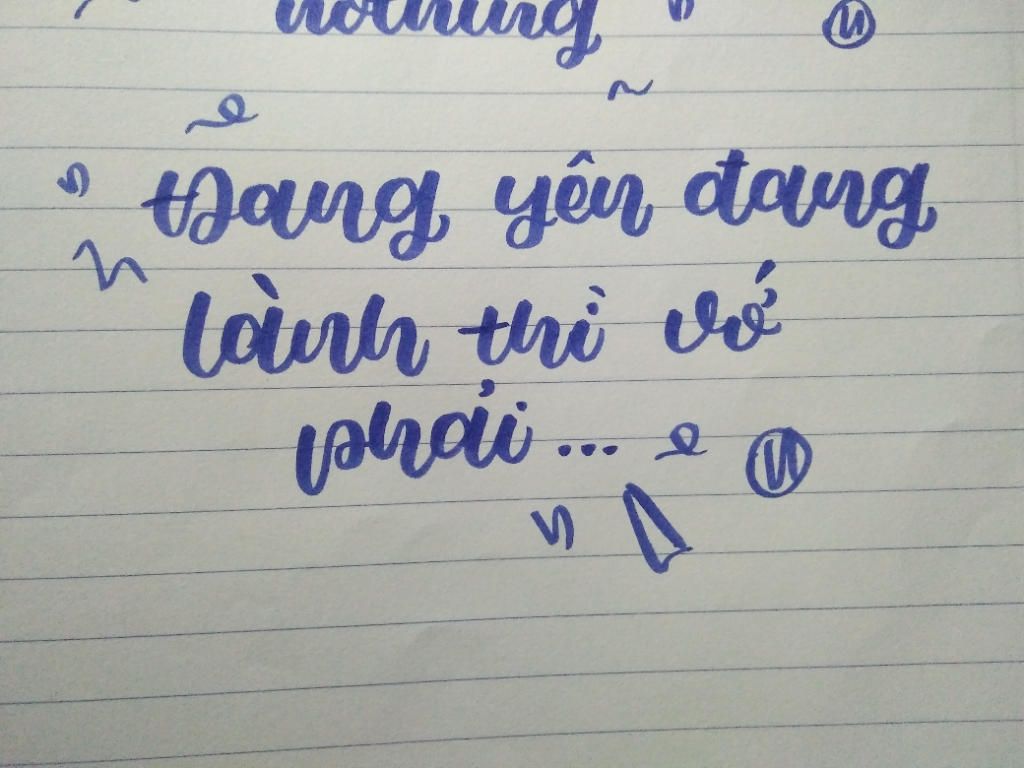 nothing
Đang yên đang
lành thì vớ
phải...